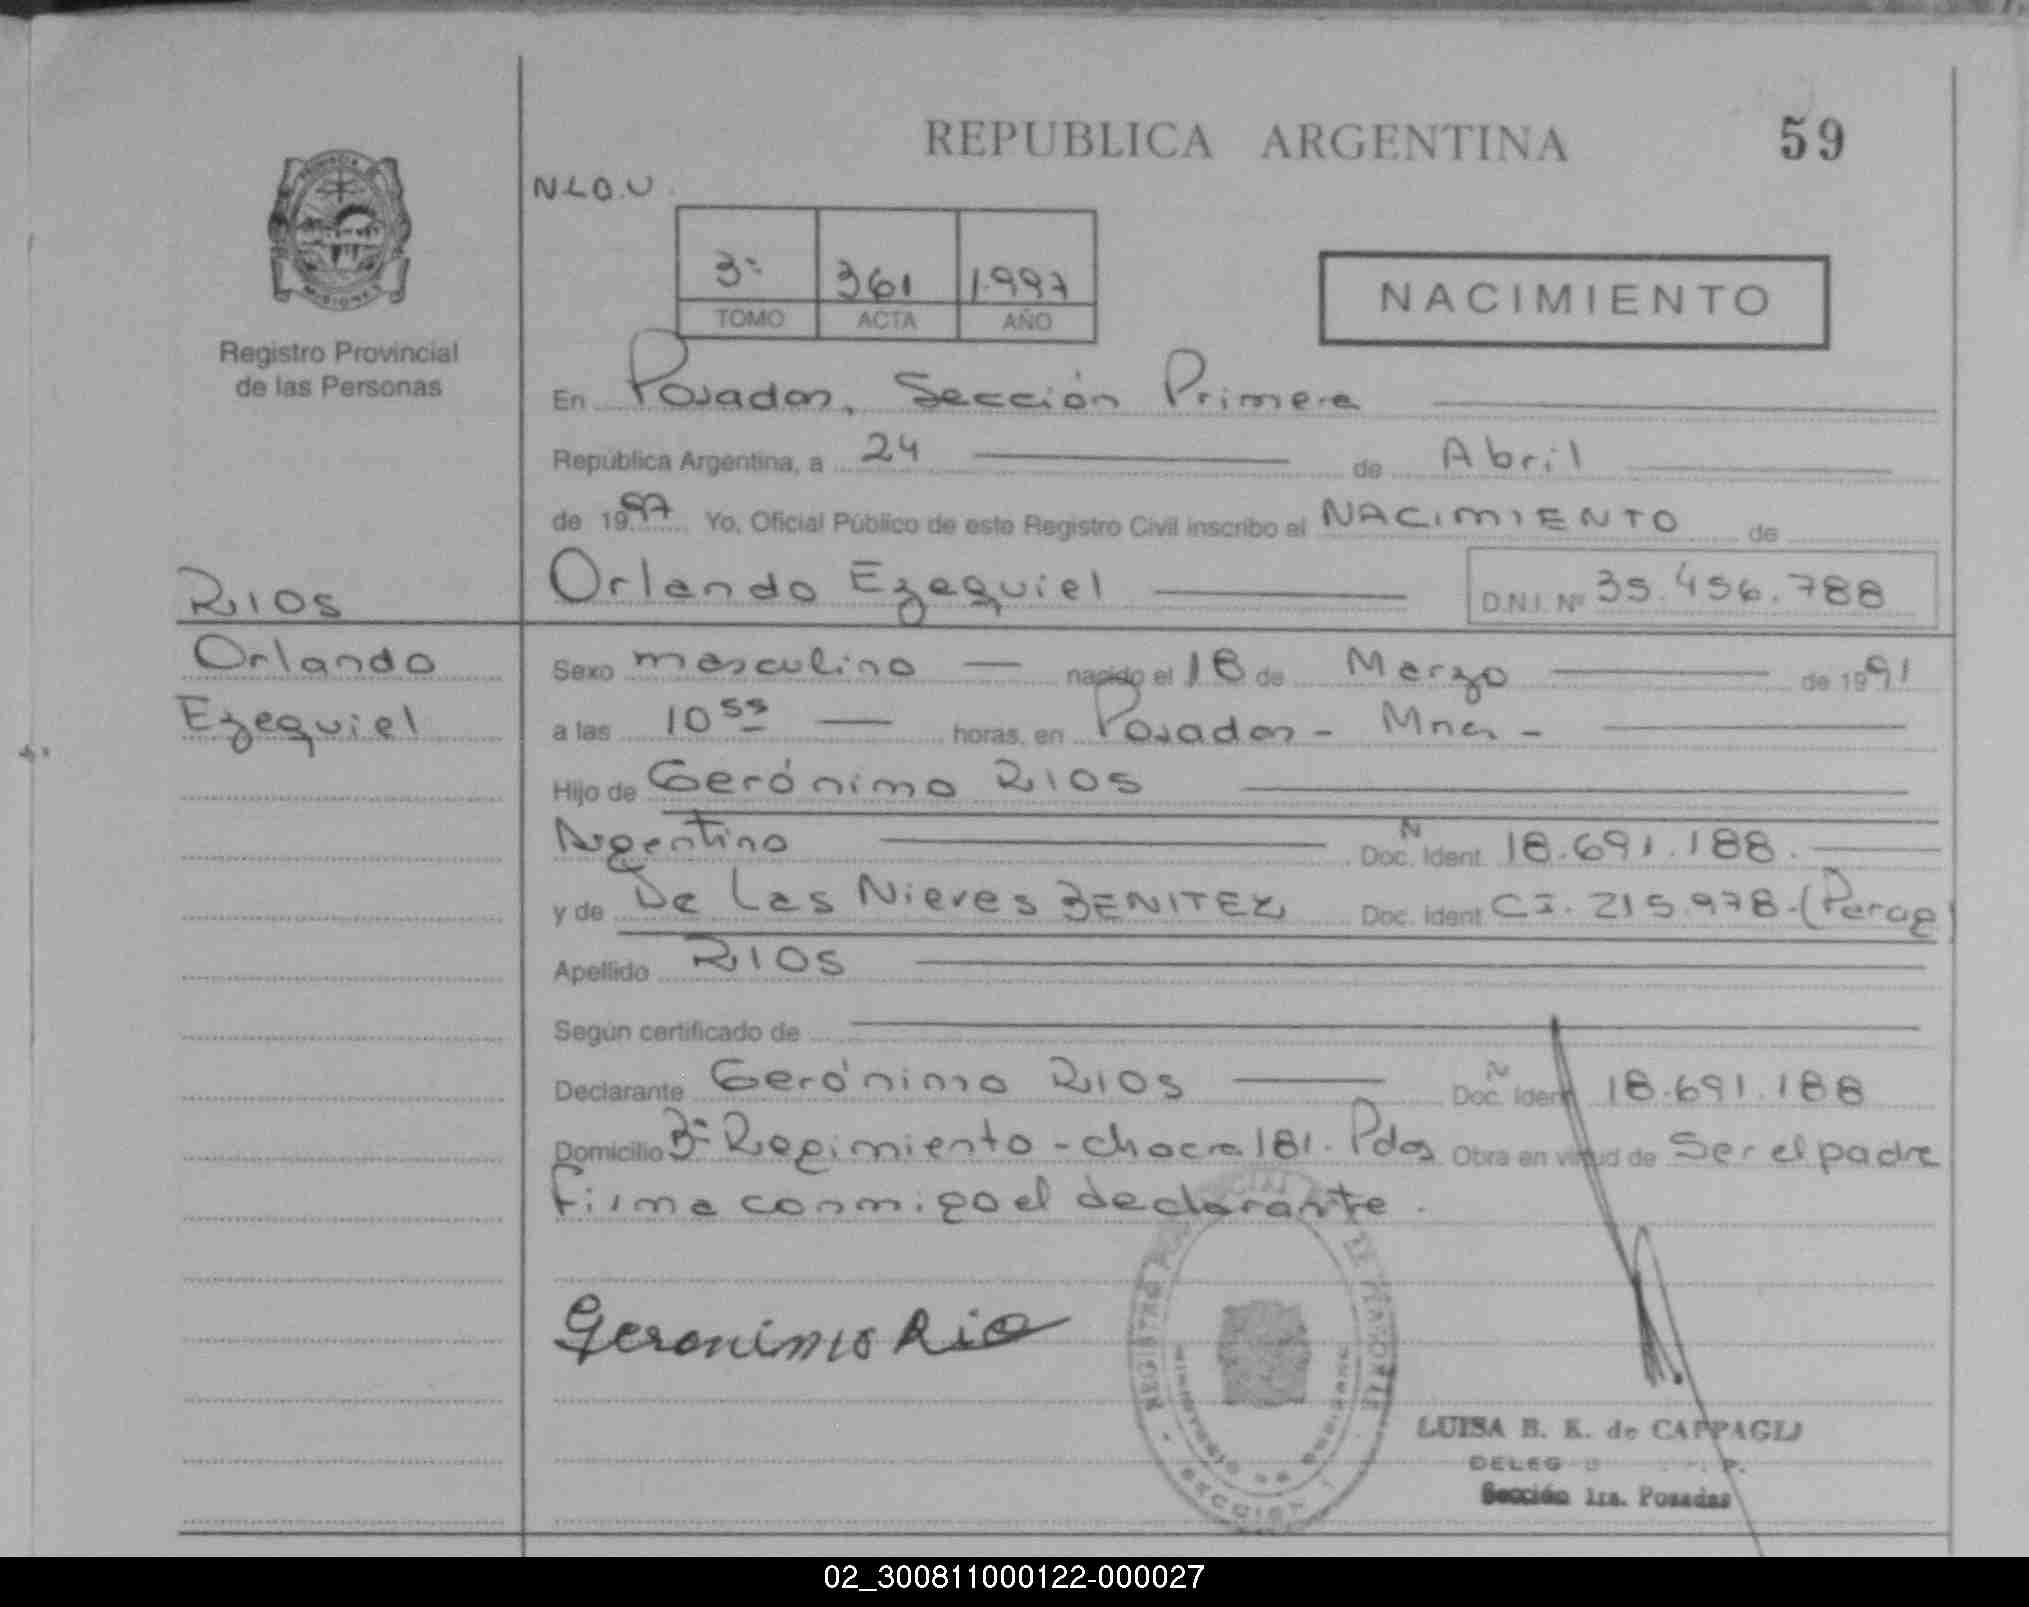 REPUBLICA ARGENTINA
59
PROVINCIA
MISIONES
Registro Provincial
de las Personas
N.L.O.U.
3º 361 1.997
TOMO ACTA AÑO
NACIMIENTO
En Posadas, Sección Primera
República Argentina, a 24 de Abril
de 1997 Yo, Oficial Público de este Registro Civil inscribo el NACIMIENTO de
RIOS
Orlando Ezequiel D.N.I. Nº 35.456.788
Orlando
Ezequiel
Sexo masculino nacido el 18 de Marzo de 1991
a las 10 55 horas, en Posadas - Mnes -
Hijo de Gerónimo RIOS
Argentino Doc. Ident. N 18.691.188.
y de De Las Nieves BENITEZ Doc. Ident. C.I. 215.978-(Parag)
Apellido RIOS
Según certificado de
Declarante Gerónimo RIOS Doc. Ident. N 18.691.188
Domicilio 3º Regimiento - chacra 181. Pdas Obra en virtud de Ser el padre
Firma conmigo el declarante.
Geronimo Rio
REGISTRO
MINISTERIO DE GOBIERNO
SECCION 1
LUISA B. K. de CAPPAGLI
DELEG
Sección 1ra. Posadas
02_300811000122-000027